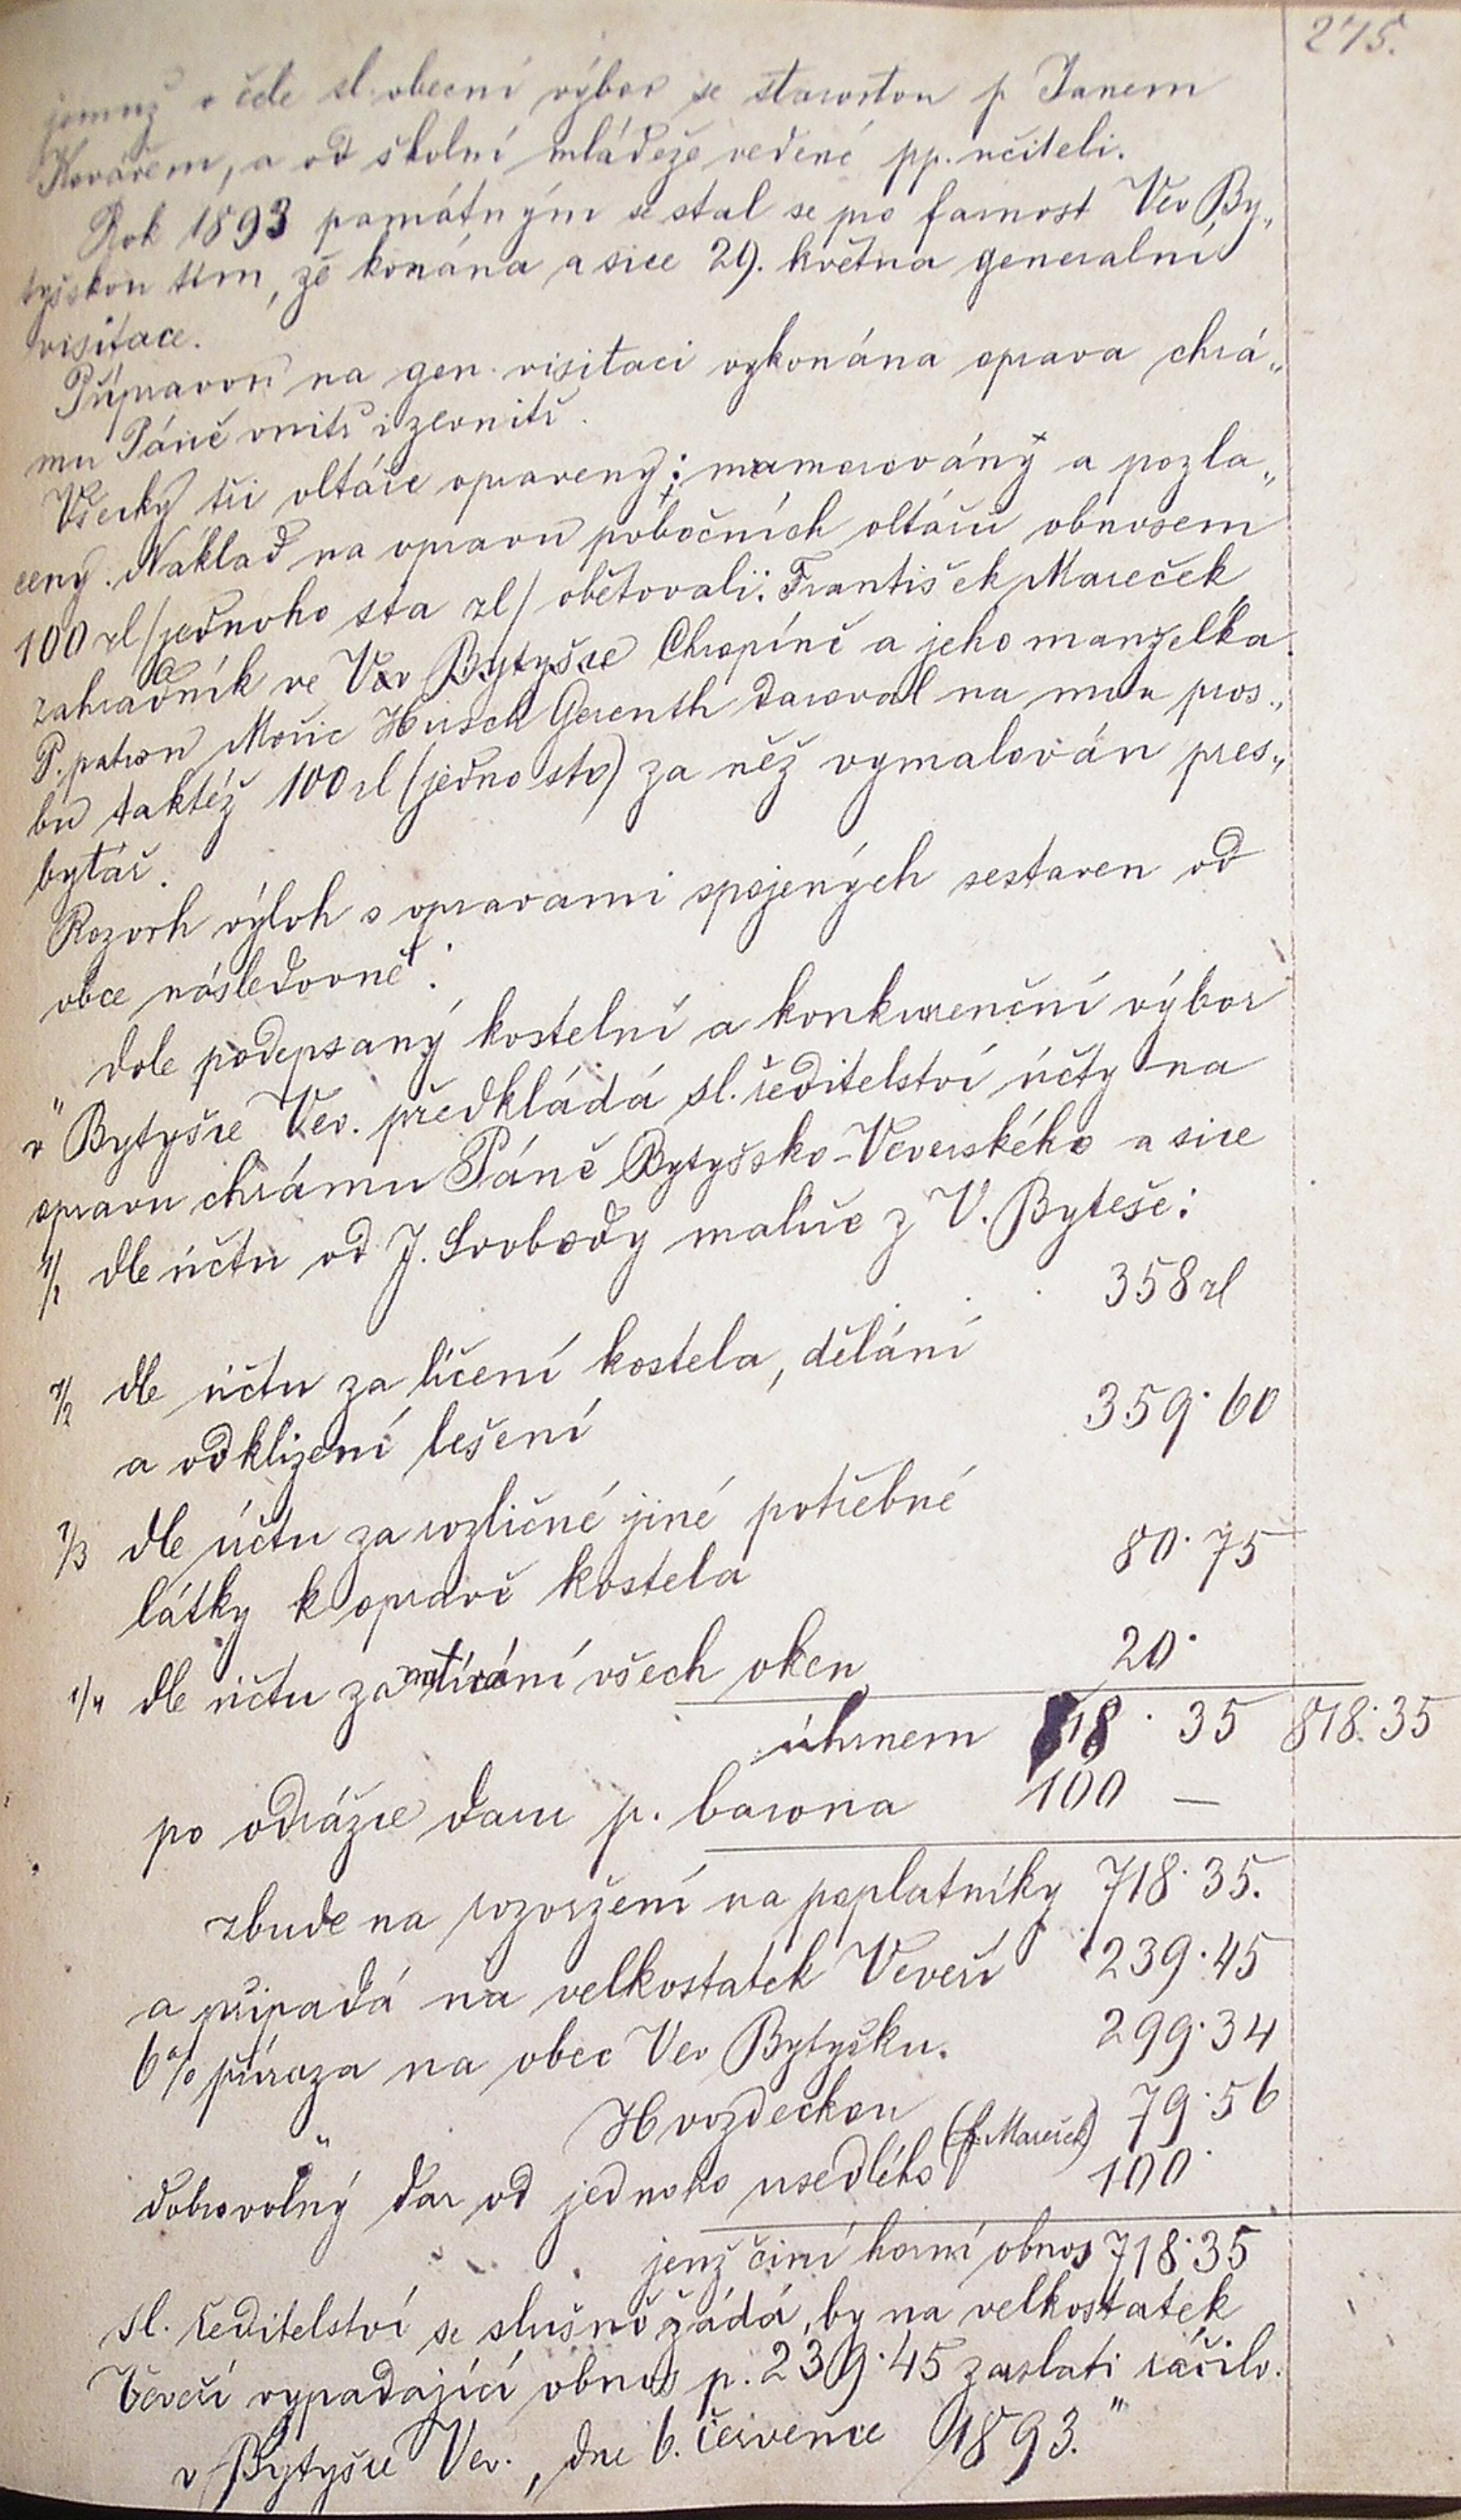 275.
jemuž v čele sl. obecní výbor se starostou p. Janem
Kovářem, a od školní mládeže vedené pp. učiteli.
Rok 1893 památným se stal se pro farnost Vev By„
tyškou tím, že konána a sice 29. května generalní
visitace.
Přípravou na gen. visitaci vykonána oprava chrá„
mu Páně vnitř i zevnitř.
Všecky tři oltáře opraveny; mramorovány a pozla„
ceny. Náklad na opravu pobočních oltářů obnosem
100 zl /jednoho sta zl/ obětovali: František Mareček,
zahradník ve Vev Bytyšce Chropíně a jeho manželka.
P. patron Mořic Hirsch Gerenth daroval na mou pros„
bu taktéž 100 zl (jedno sto) za něž vymalován pres„
bytář.
Rozvrh výloh s opravami spojených sestaven od
obce následovně:
„Dole podepsaný kostelní a konkurenční výbor
v Bytyšce Vev. předkládá sl. ředitelství účty na
opravu chrámu Páně Bytyšsko-Veverského a sice
1/1 dle účtu od J. Svobody malíře z V. Byteše:
358 zl
1/2 dle účtu za líčení kostela, dělání
a odklizení lešení 359·60
1/3 dle účtu za rozličné jiné potřebné
látky k opravě kostela 80·75
1/4 dle účtu za natírání všech oken 20·
úhrnem 818·35 818·35
po odrážce daru p. barona 100 —
zbude na rozvržení na poplatníky 718·35.
a připadá na velkostatek Veveří 239·45
6% přirážka na obec Vev Bytyšku. 299·34
„ Hvozdeckou 79·56
dobrovolný dar od jednoho usedlého (f. Mareček) 100·
jenž činí horní obnos 718·35
sl. ředitelství se slušně žádá, by na velkostatek
Veveří vypadající obnos p. 239·45 zaslati ráčilo.
v Bytyšce Vev., dne 6. července 1893."